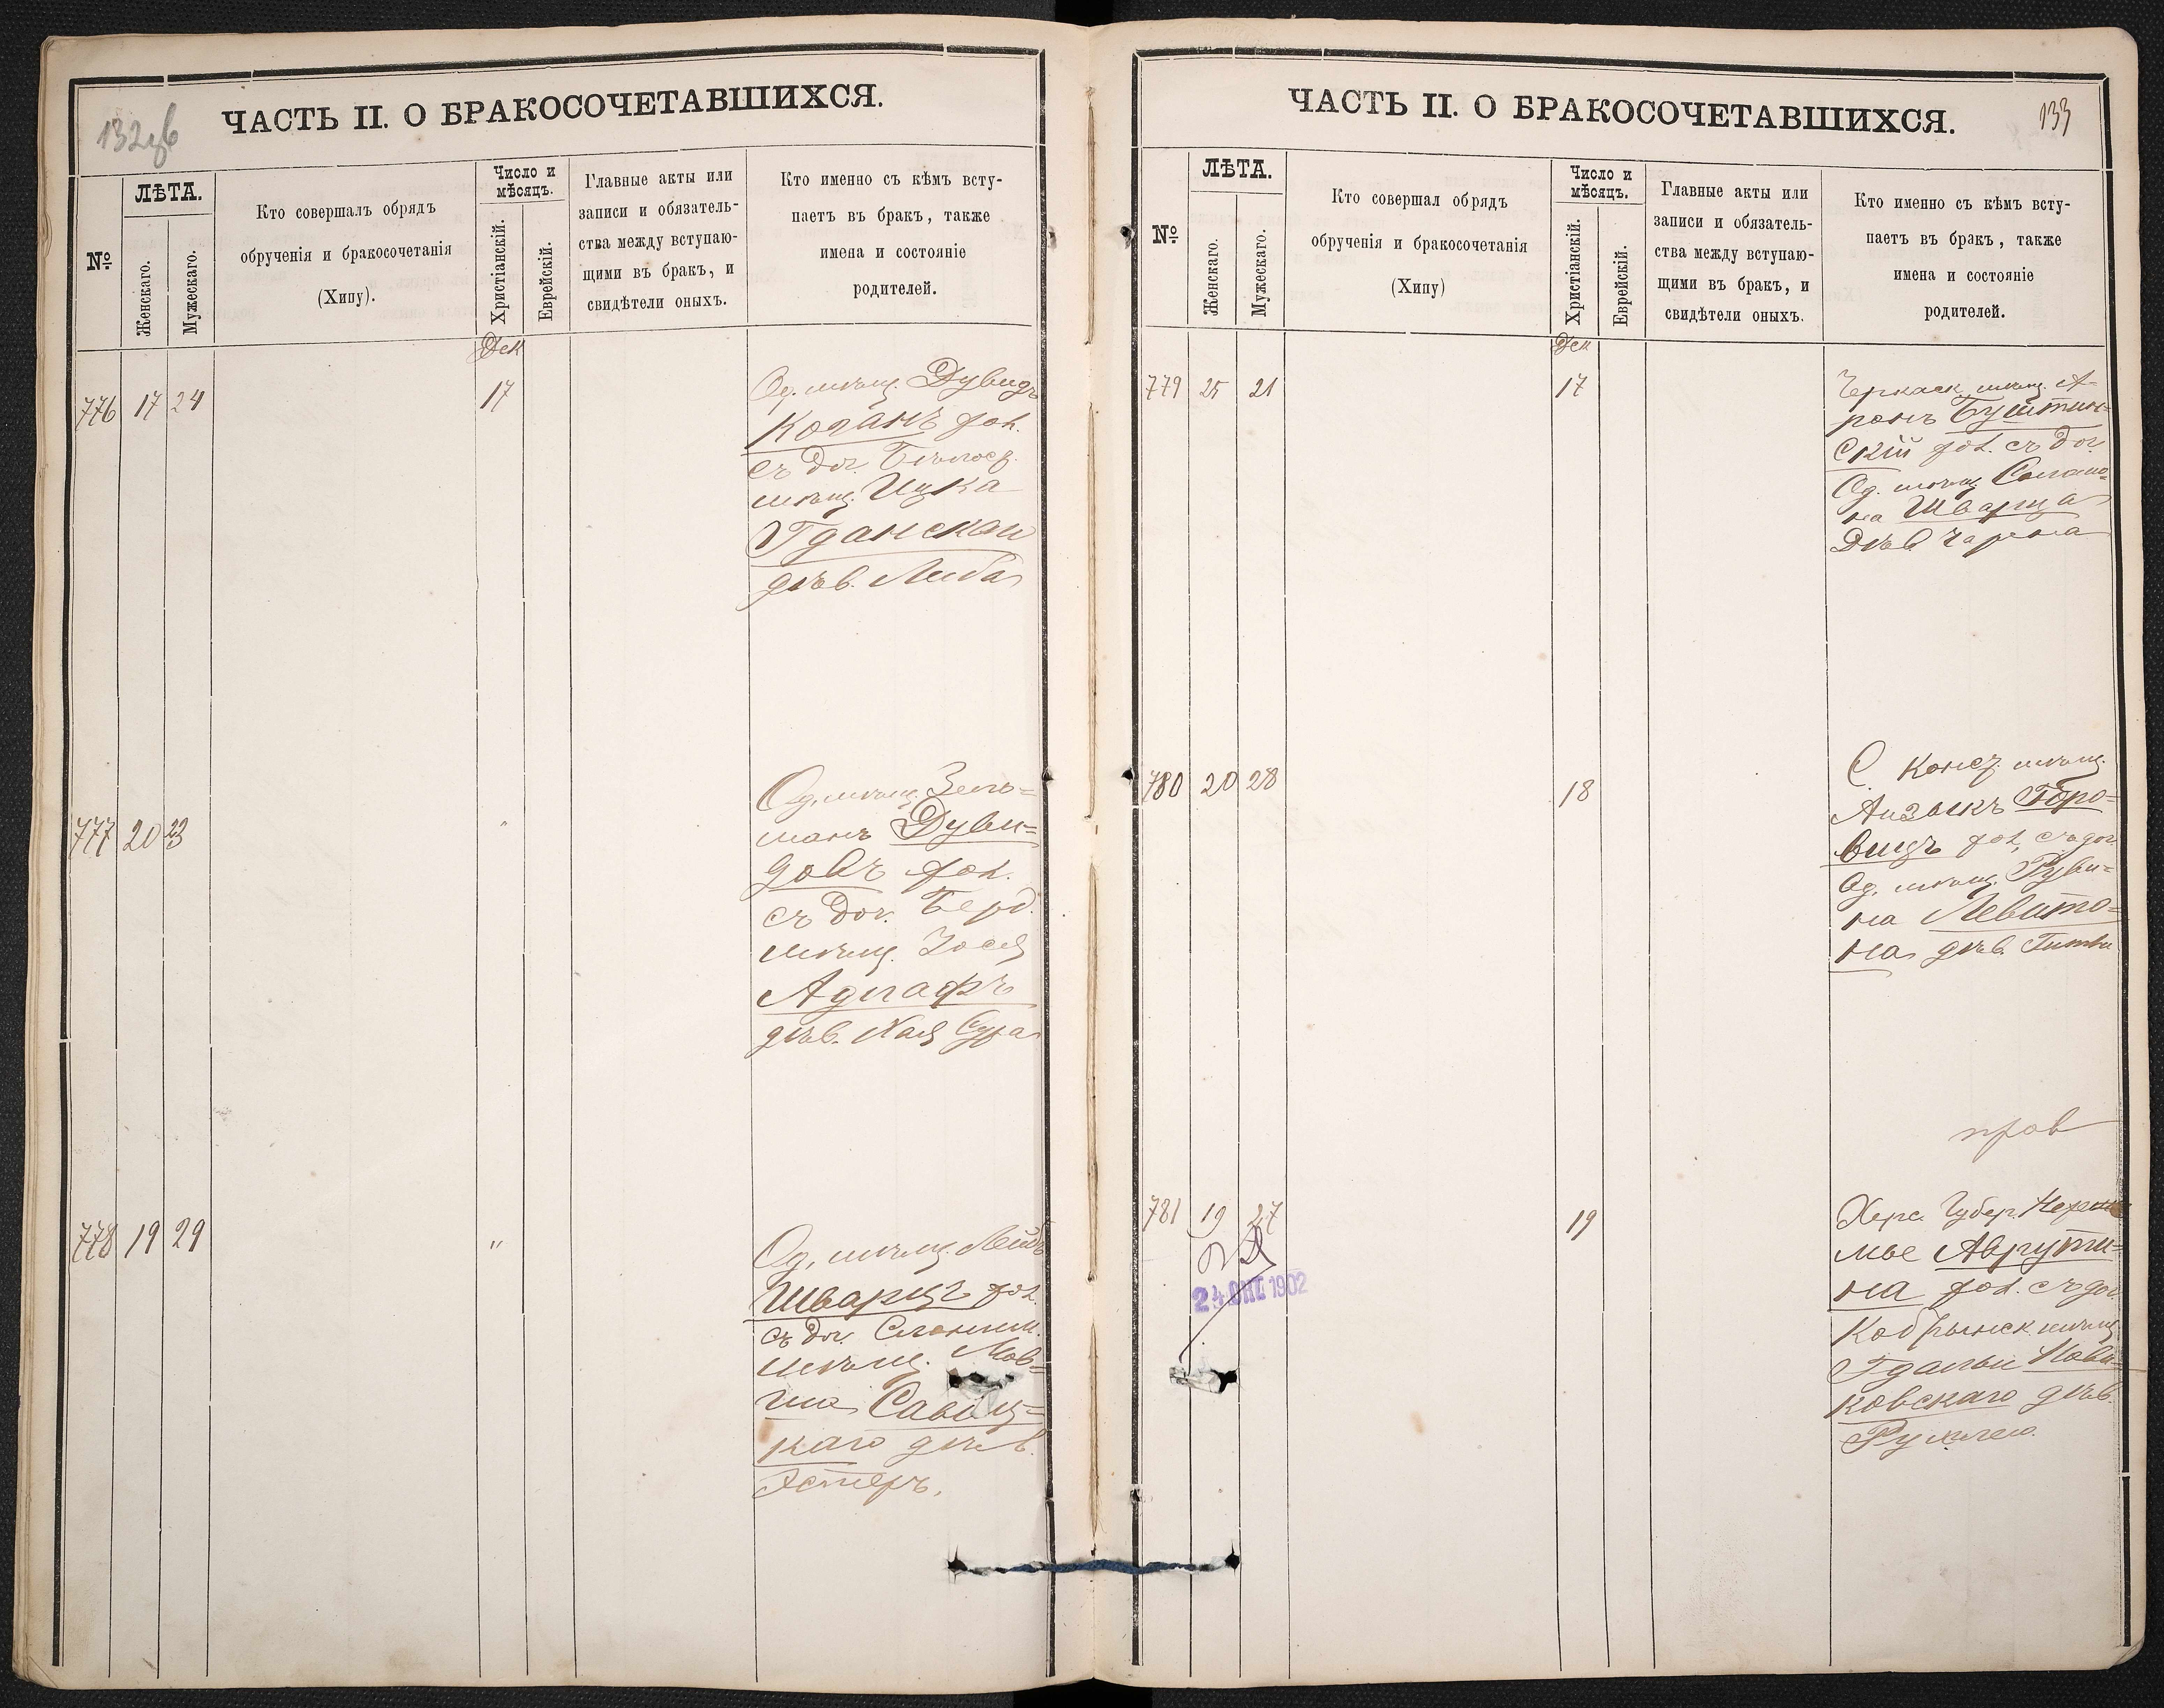 132 об
ЧАСТЬ II. О БРАКОСОЧЕТАВШИХСЯ.
№
ЛѢТА.
Женскаго.
Мужескаго.
Кто совершалъ обрядъ
обрученія и бракосочетанія
(Хипу).
Число и
мѣсяцъ.
Христіанскій.
Еврейскій.
Главные акты или
записи и обязатель-
ства между вступаю-
щими въ бракъ, и
свидѣтели оныхъ.
Кто именно съ кѣмъ всту-
паетъ въ бракъ, также
имена и состояніе
родителей.
Дек
776 17 24
17
Од. мѣщ. Дувидъ
Коганъ хол.
съ доч.
мѣщ. Ицка
Гданскаи
дѣв. Либа
777 20 23
"
Од. мѣщ. Зель=
манъ Дуви=
довъ хол.
съ доч. Берд.
мѣщ. Іося
Адграфъ
дѣв. Хая Сура
778 19 29
"
Од. мѣщ. Лейбъ
Шварцъ хол.
съ доч. Слоним.
мѣщ. Мов=
ша Савиц=
каго дѣв.
Эстеръ.
ЧАСТЬ II. О БРАКОСОЧЕТАВШИХСЯ.
133
№
ЛѢТА.
Женскаго.
Мужескаго.
Кто совершал обрядъ
обрученія и бракосочетанія
(Хипу)
Число и
мѣсяцъ.
Христіанскій.
Еврейскій.
Главные акты или
записи и обязатель-
ства между вступаю-
щими въ бракъ, и
свидѣтели оныхъ.
Кто именно съ кѣмъ всту-
паетъ въ бракъ, также
имена и состояніе
родителей.
Дек
779 25 21
17
Черкаск. мѣщ. А-
ронъ Буштин=
скій хол. съ доч.
Од. мѣщ. Соломо=
на Шварца
Дѣв Чарна
780 20 28
18
С. Конст. мѣщ.
Аизыкъ Горо=
вицъ хол. съ доч.
Од. мѣщ. Руви=
на Левито=
на дѣв. Гитля
прав
781 19 27
24 ОКТ 1902
19
Херс. Губер.
мье Аврути=
на хол. съ доч.
Кобрынск. мѣщ.
Гдальи Нови=
ковскаго дѣв.
Рухлею.